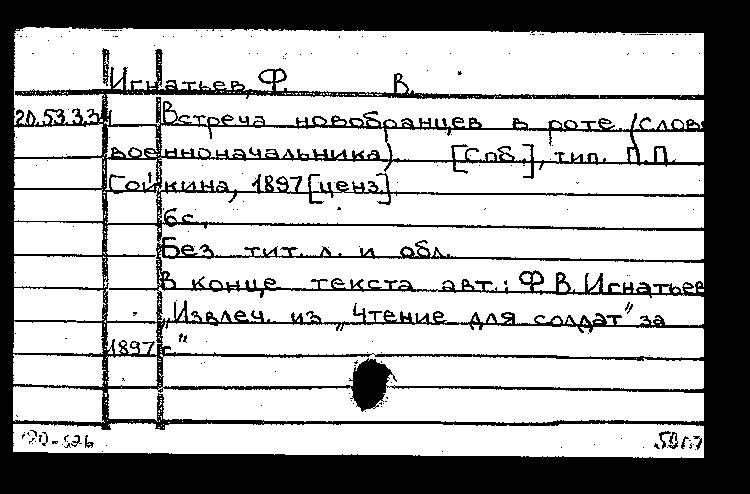 Игнатьев, Ф. В.
20.53.3.34 Встреча новобранцев в роте (слово
военноначальника). [Спб.], тип. П.П.
Сойкина, 1897 [ценз.]
6с.
Без тит. л. и обл.
В конце текста авт.: Ф.В. Игнатьев
„Извлеч. из „Чтение для солдат" за
1897 г."